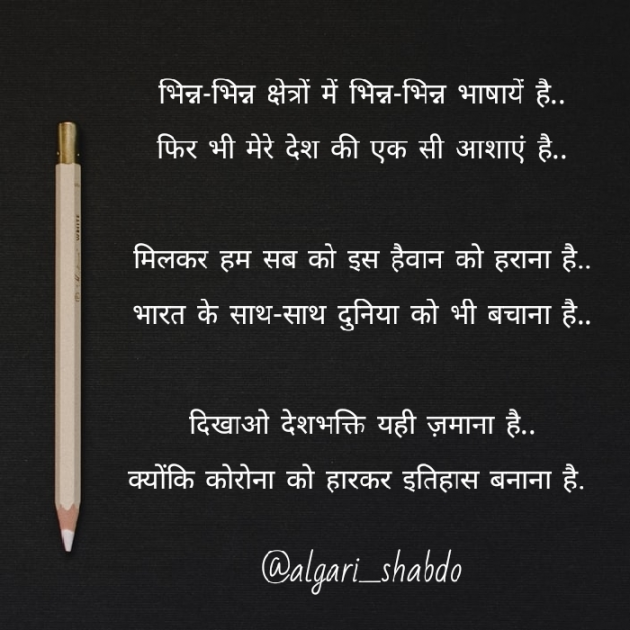 भिन्न-भिन्न क्षेत्रों में भिन्न-भिन्न भाषायें है..
फिर भी मेरे देश की एक सी आशाएं है..
मिलकर हम सब को इस हैवान को हराना है..
भारत के साथ-साथ दुनिया को भी बचाना है..
दिखाओ देशभक्ति यही ज़माना है..
क्योंकि कोरोना को हारकर इतिहास बनाना है.
@algari_shabdo